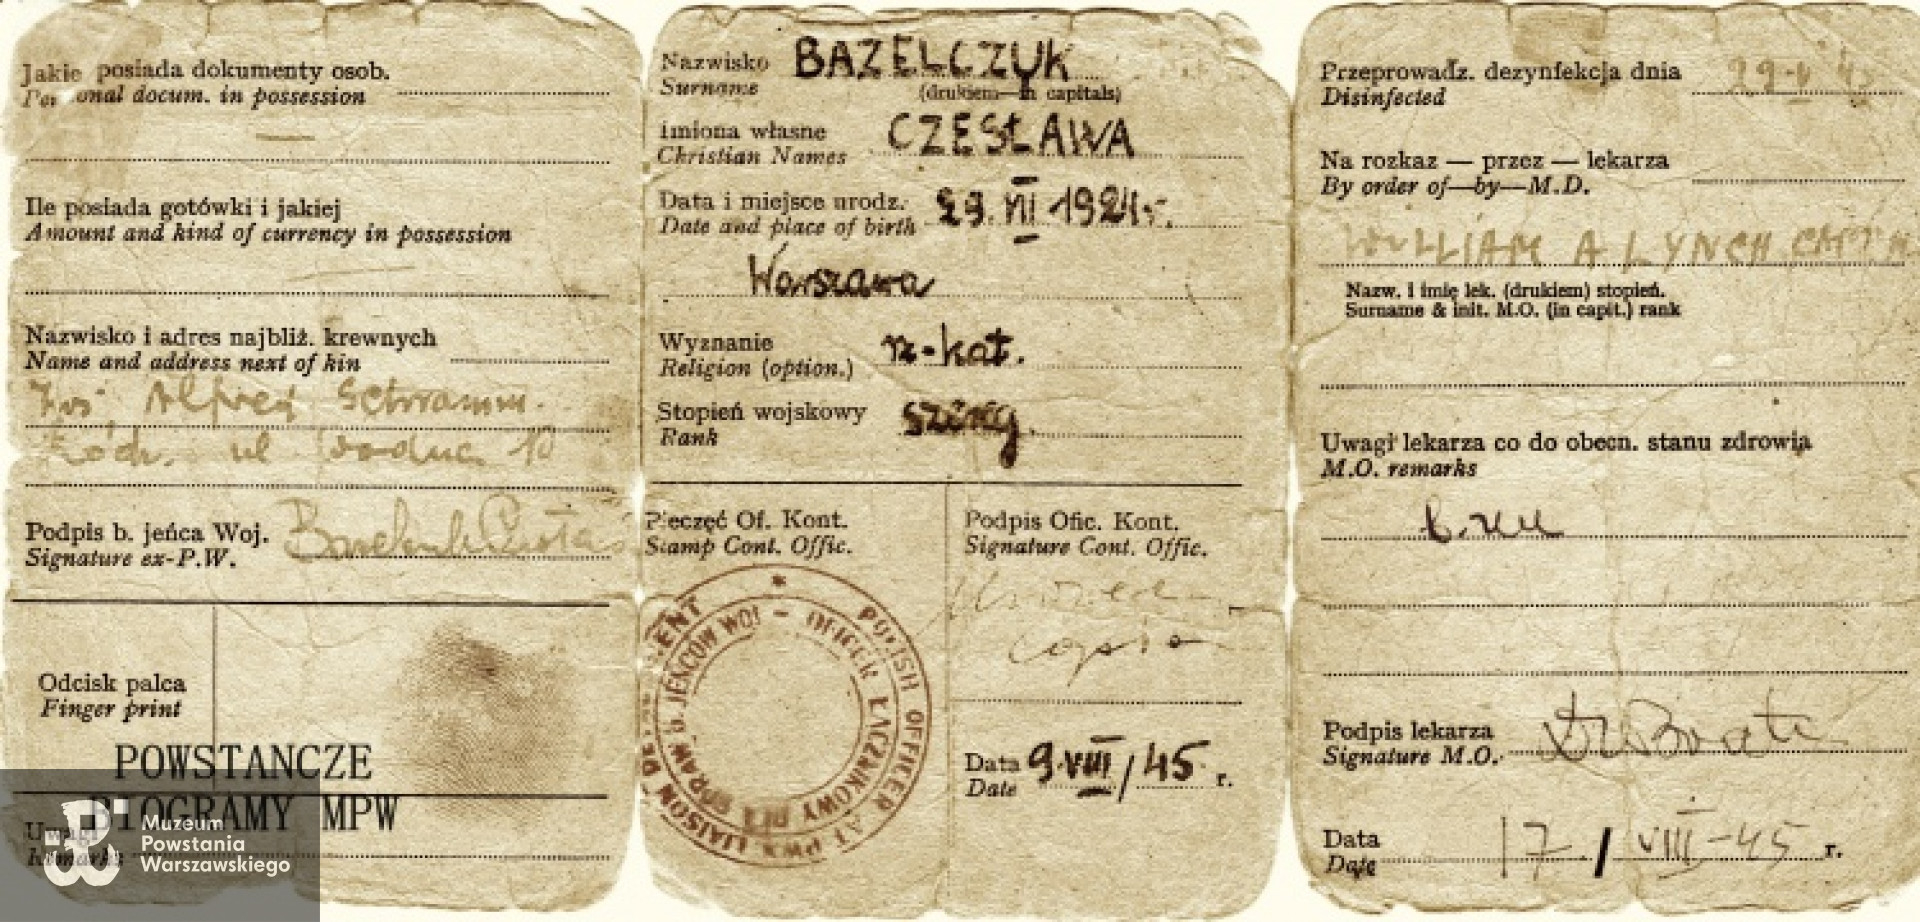 Jakie posiada dokumenty osob.
Personal docum. in possession
—
Ile posiada gotówki i jakiej
Amount and kind of currency in possession
Nazwisko i adres najbliż. krewnych
Name and address next of kin
Alfred Schramm.
Łódź. ul Wodna 10
Podpis b. jeńca Woj.
Signature ex-P.W.
Odcisk palca
Finger print
Uwagi
Remarks
POWSTANCZE
BIOGRAMY MPW
Muzeum
Powstania
Warszawskiego
Nazwisko BAZELCZUK
Surname (drukiem—in capitals)
Imiona własne CZESŁAWA
Christian Names
Data i miejsce urodz. 29. VII 1924 r.
Date and place of birth
Warszawa
Wyznanie rz-kat.
Religion (option.)
Stopień wojskowy szereg.
Rank
Pieczęć Of. Kont.
Stamp Cont. Offic.
POLISH OFFICER AT PWX LIAISON
OFICER ŁĄCZNIKOWY DLA SPRAW b. JEŃCÓW WOJ –
Podpis Ofic. Kont.
Signature Cont. Offic.
Data 9.VIII/45 r.
Date
Przeprowadz. dezynfekcja dnia
Disinfected
Na rozkaz — przez — lekarza
By order of—by—M.D.
WILLIAM A LYNCH CAPT
Nazw. i imię lek. (drukiem) stopień.
Surname & init. M.O. (in capit.) rank
Uwagi lekarza co do obecn. stanu zdrowia
M.O. remarks
Podpis lekarza
Signature M.O.
Data 17./VIII-45 r.
Date